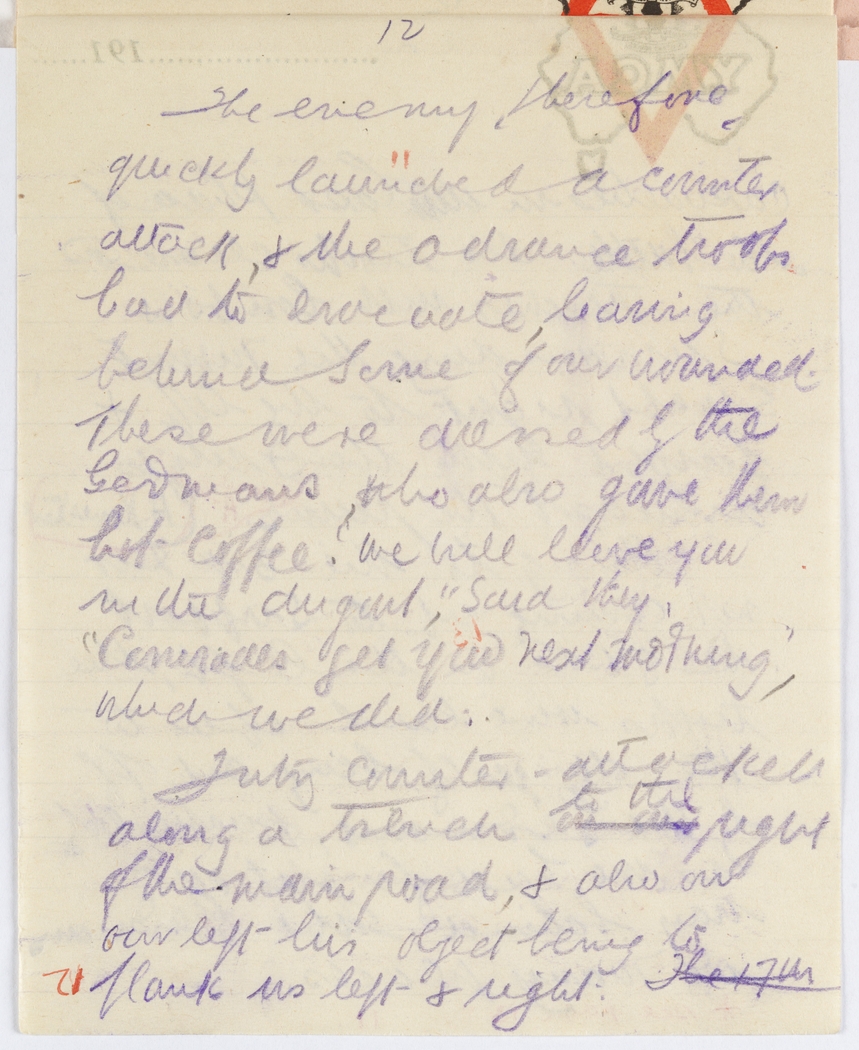 12
191
ARMY
The enemy, therefore,
quickly launched a counter
attack, & the advance troops
had to evacuate, leaving
behind some of our wounded.
These were dressed by the
Germans, who also gave them
hot coffee. "We will leave you
in the dugout," said they,
"Comrades get you next morning",
which we did.
Fritz counter-attacked
along a trench to the right
of the main road, & also on
our left his object being to
12 flank us left & right. The 17th